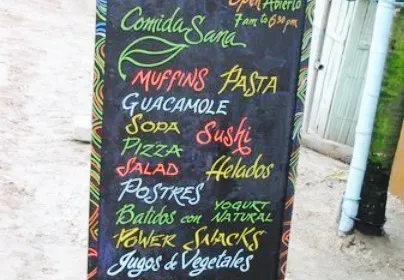 Open Abierto
7am to 6:30 pm
Comida Sana
MUFFINS PASTA
GUACAMOLE
SOPA Sushi
PIZZA
SALAD Helados
POSTRES
Batidos con YOGURT NATURAL
POWER SNACKS
Jugos de Vegetales